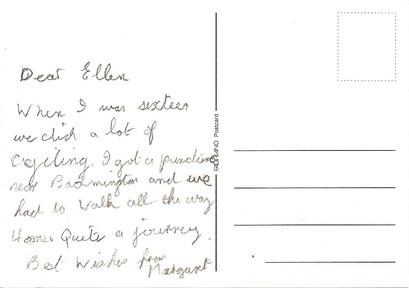 Dear Ellen
When I was sixteen
we did a lot of
Cycling. I got a puncture
near Badmington and we
had to walk all the way
Home. Quite a journey.
Best Wishes from
Margaret
Postcard